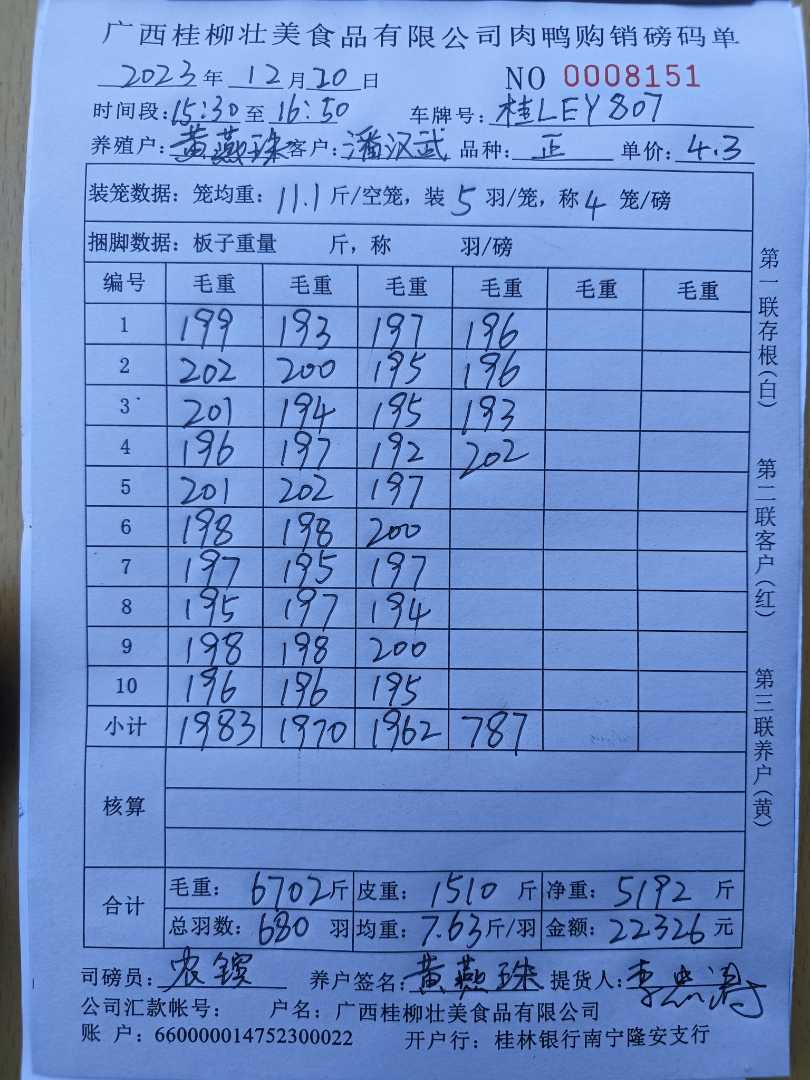 广西桂柳壮美食品有限公司肉鸭购销磅码单
2023年12月20日 NO 0008151
时间段:15:30至16:50 车牌号:桂LEY807
养殖户:黄燕珠客户:潘汉武 品种:正 单价:4.3
装笼数据:笼均重:11.1斤/空笼,装5羽/笼,称4笼/磅
捆脚数据:板子重量 斤,称 羽/磅
编号 毛重 毛重 毛重 毛重 毛重 毛重
1 199 193 197 196
2 202 200 195 196
3 201 194 195 193
4 196 197 192 202
5 201 202 197
6 198 198 200
7 197 195 197
8 195 197 194
9 198 198 200
10 196 196 195
小计 1983 1970 1962 787
核算
合计 毛重:6702斤 皮重:1510斤 净重:5192斤
总羽数:680羽 均重:7.63斤/羽 金额:22326元
司磅员: 养户签名:黄燕珠 提货人:李
公司汇款帐号: 户名:广西桂柳壮美食品有限公司
账 户:660000014752300022 开户行:桂林银行南宁隆安支行
第一联存根(白) 第二联客户(红) 第三联养户(黄)